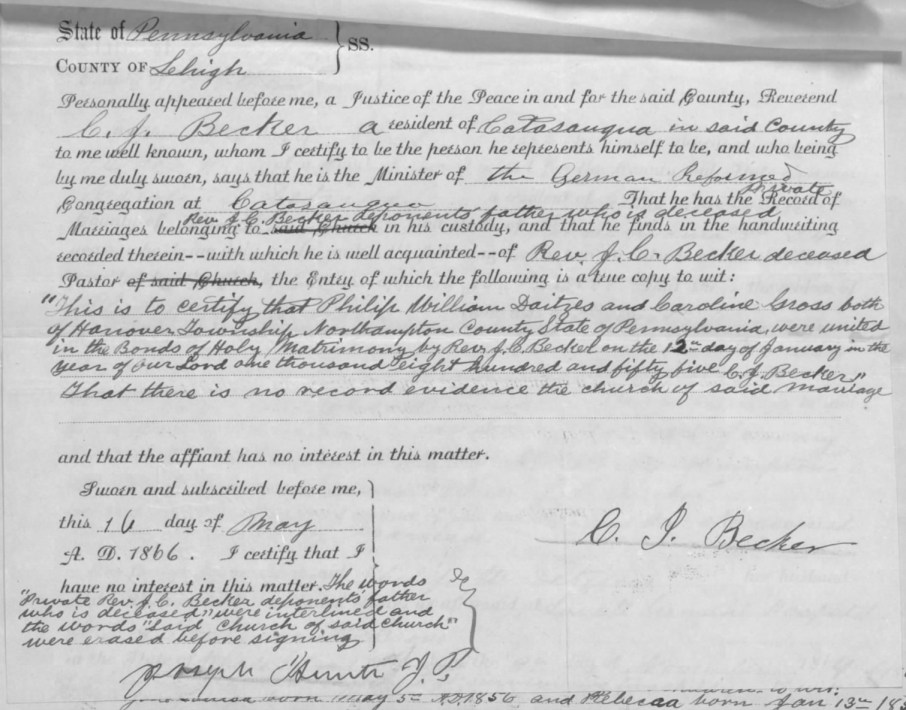 State of Pennsylvania } SS.
COUNTY OF Lehigh
Personally appeared before me, a Justice of the Peace in and for the said County, Reverend
C. J. Becker a resident of Catasauqua in said County
to me well known, whom I certify to be the person he represents himself to be, and who being
by me duly sworn, says that he is the Minister of the German Reformed
Private
Congregation at Catasauqua That he has the Record of
Rev. J. C. Becker deponents father who is deceased
Marriages belonging to said Church in his custody, and that he finds in the handwriting
recorded therein--with which he is well acquainted--of Rev. J. C. Becker deceased
Pastor of said Church, the Entry of which the following is a true copy to wit:
"This is to certify that Philip William Daitzes and Caroline Gross both
of Hanover Township Northampton County State of Pennsylvania, were united
in the Bonds of Holy Matrimony by Rev. J. C. Becker on the 12th day of January in the
year of our Lord one thousand eight hundred and fifty five C. J. Becker"
That there is no record evidence the church of said marriage
and that the affiant has no interest in this matter.
Sworn and subscribed before me,
this 16 day of May
C. J. Becker
A. D. 1866. I certify that I
have no interest in this matter. The words
"Private Rev. J. C. Becker deponents father
who is deceased" were interlined and
the words "Said Church of said church"
were erased before signing
Joseph Hunter J. P.
born May 5th A.D. 1856 and Rebecca born Jan 13th 185